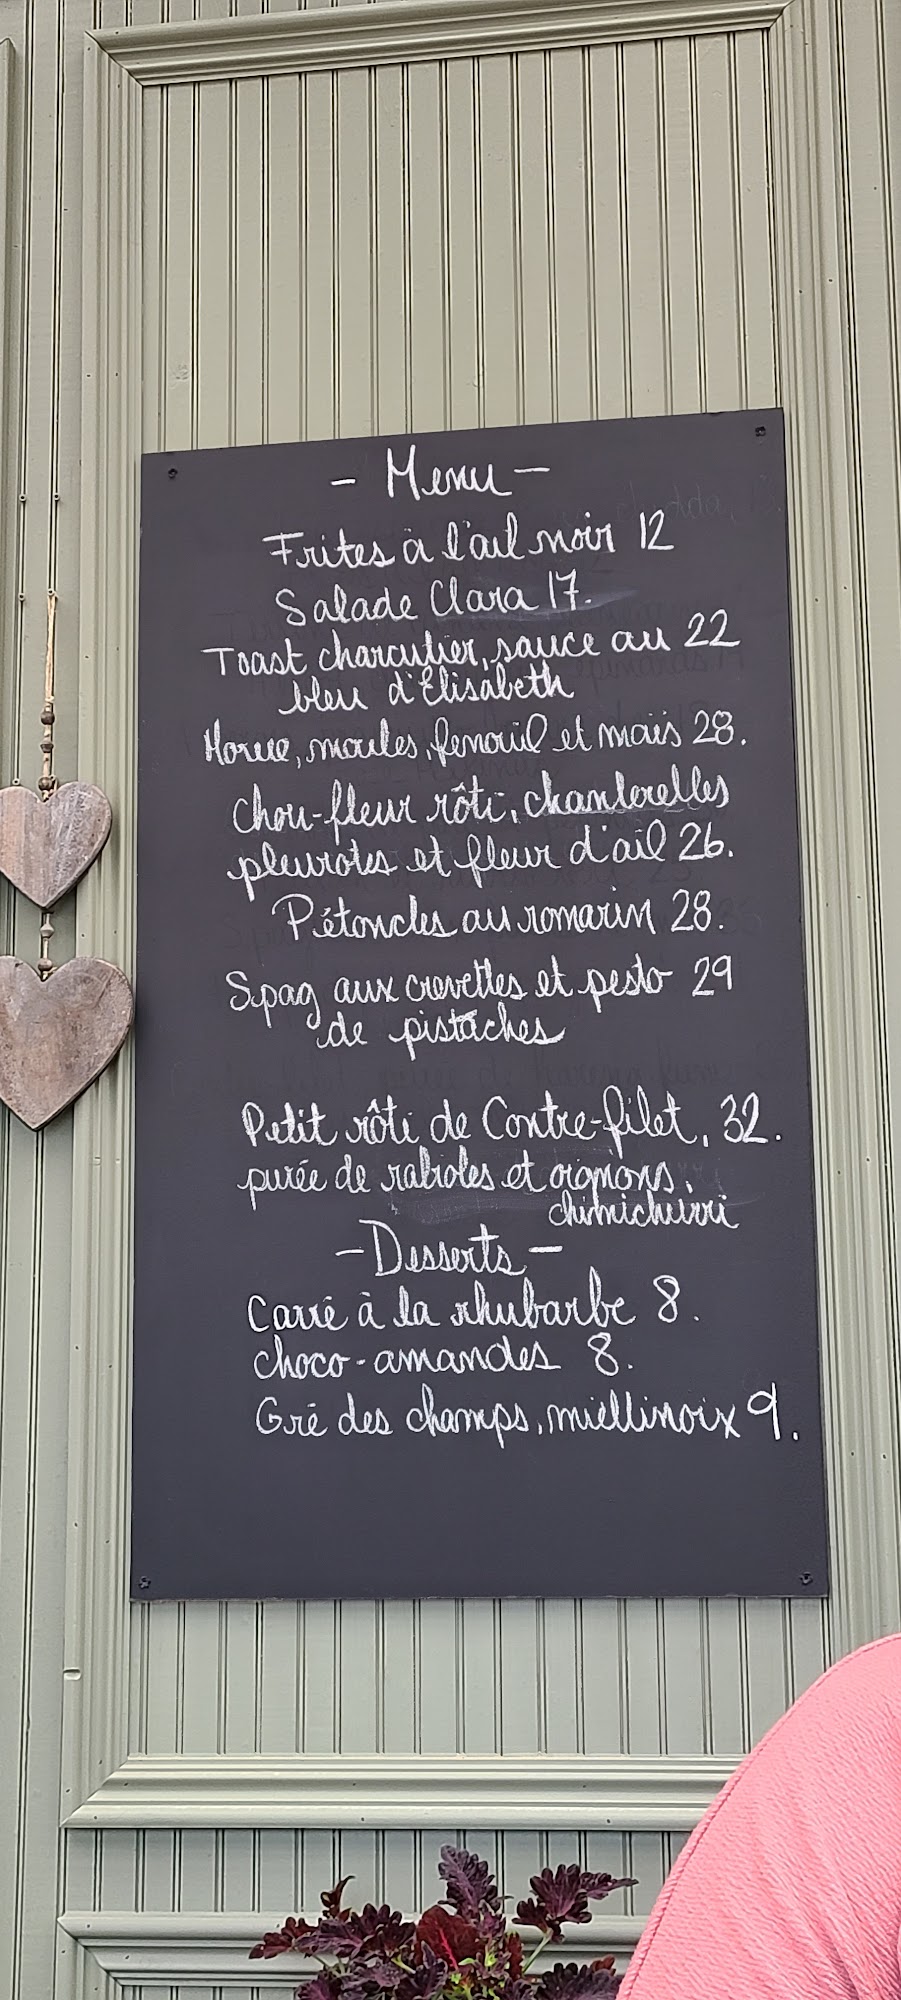 - Menu -
Frites à l'ail noir 12
Salade Clara 17.
Toast charcutier, sauce au 22
bleu d'Élisabeth
Morue, moules, fenouil et maïs 28.
Chou-fleur rôti, chanterelles
pleurotes et fleur d'ail 26.
Pétoncles au romarin 28.
Spag aux crevettes et pesto 29
de pistaches
Petit rôti de Contre-filet, 32.
purée de rabioles et oignons,
chimichurri
- Desserts -
Carré à la rhubarbe 8.
choco-amandes 8.
Gré des champs, miellinoix 9.